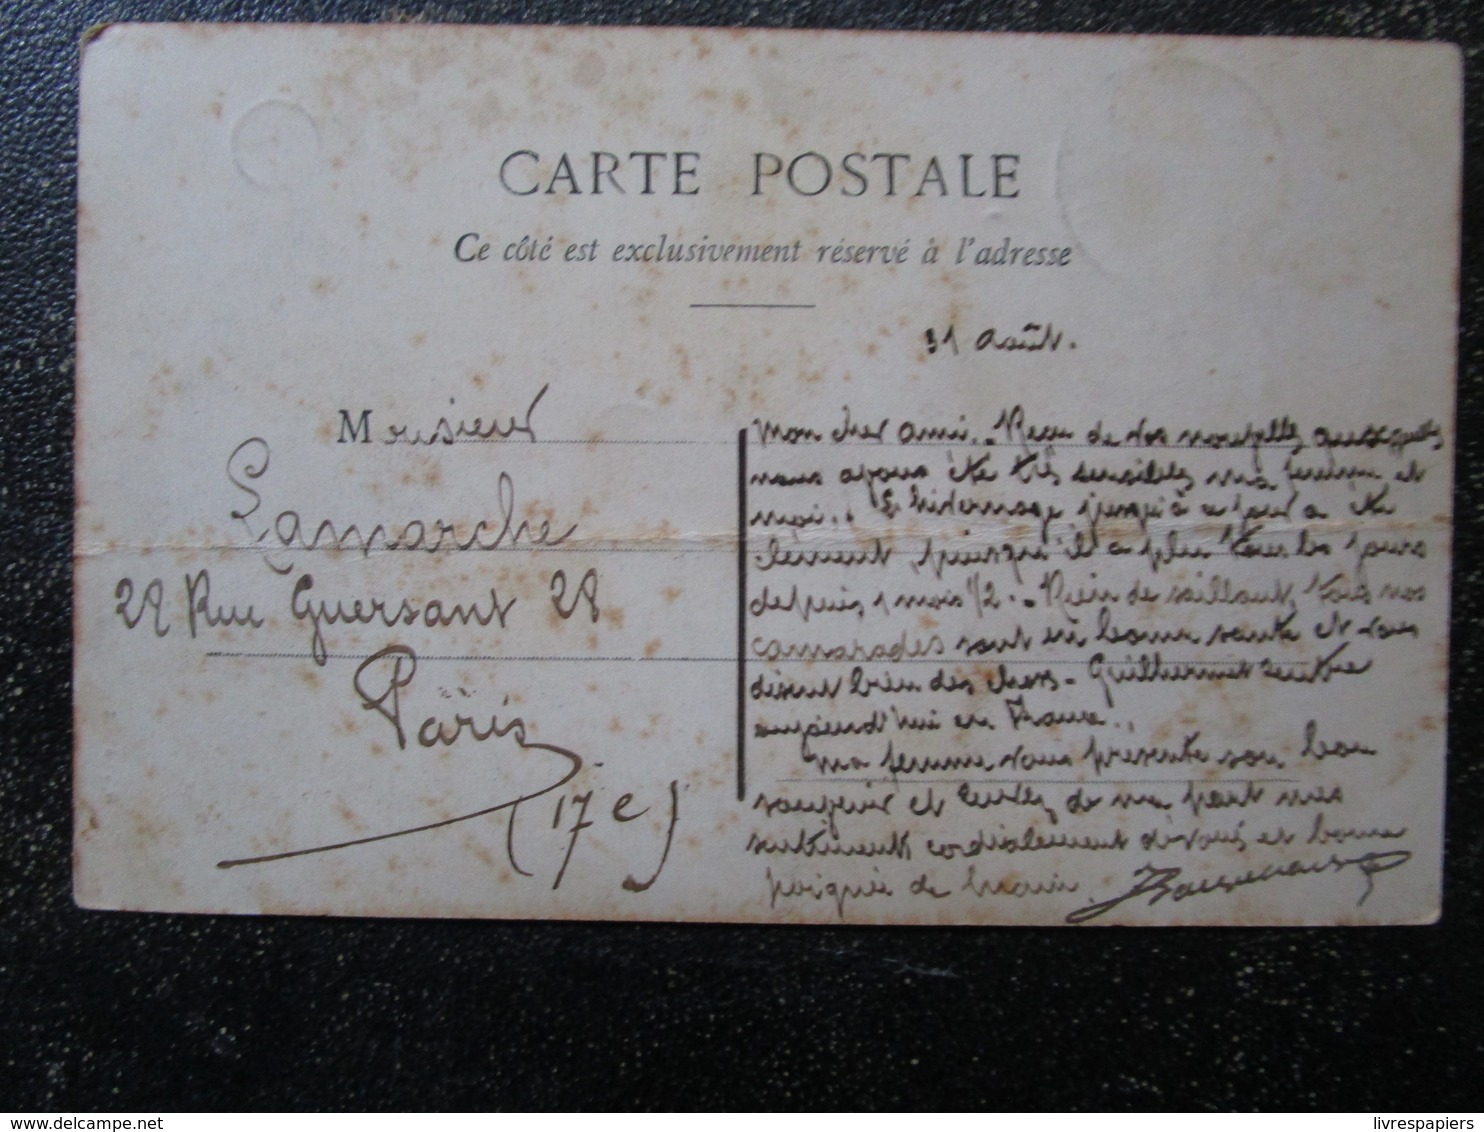 CARTE POSTALE
Ce côté est exclusivement réservé à l'adresse
31 août.
Monsieur
Lamarche
28 Rue Guersant 28
Paris
(17e)
Mon cher ami.. Reçu de vos nouvelles auxquelles
nous avons été très sensibles ma femme et
moi.. L'hivernage jusqu'à ce jour a été
clément, puisqu'il a plu tous les jours
depuis 1 mois 1/2.. Rien de saillant, tous nos
camarades sont en bonne santé et vous
disent bien des choses - Guilhermet rentre
aujourd'hui en France..
Ma femme vous présente son bon
souvenir et recevez de ma part mes
sentiments cordialement dévoués et bonne
poignée de main.
livrespapiers